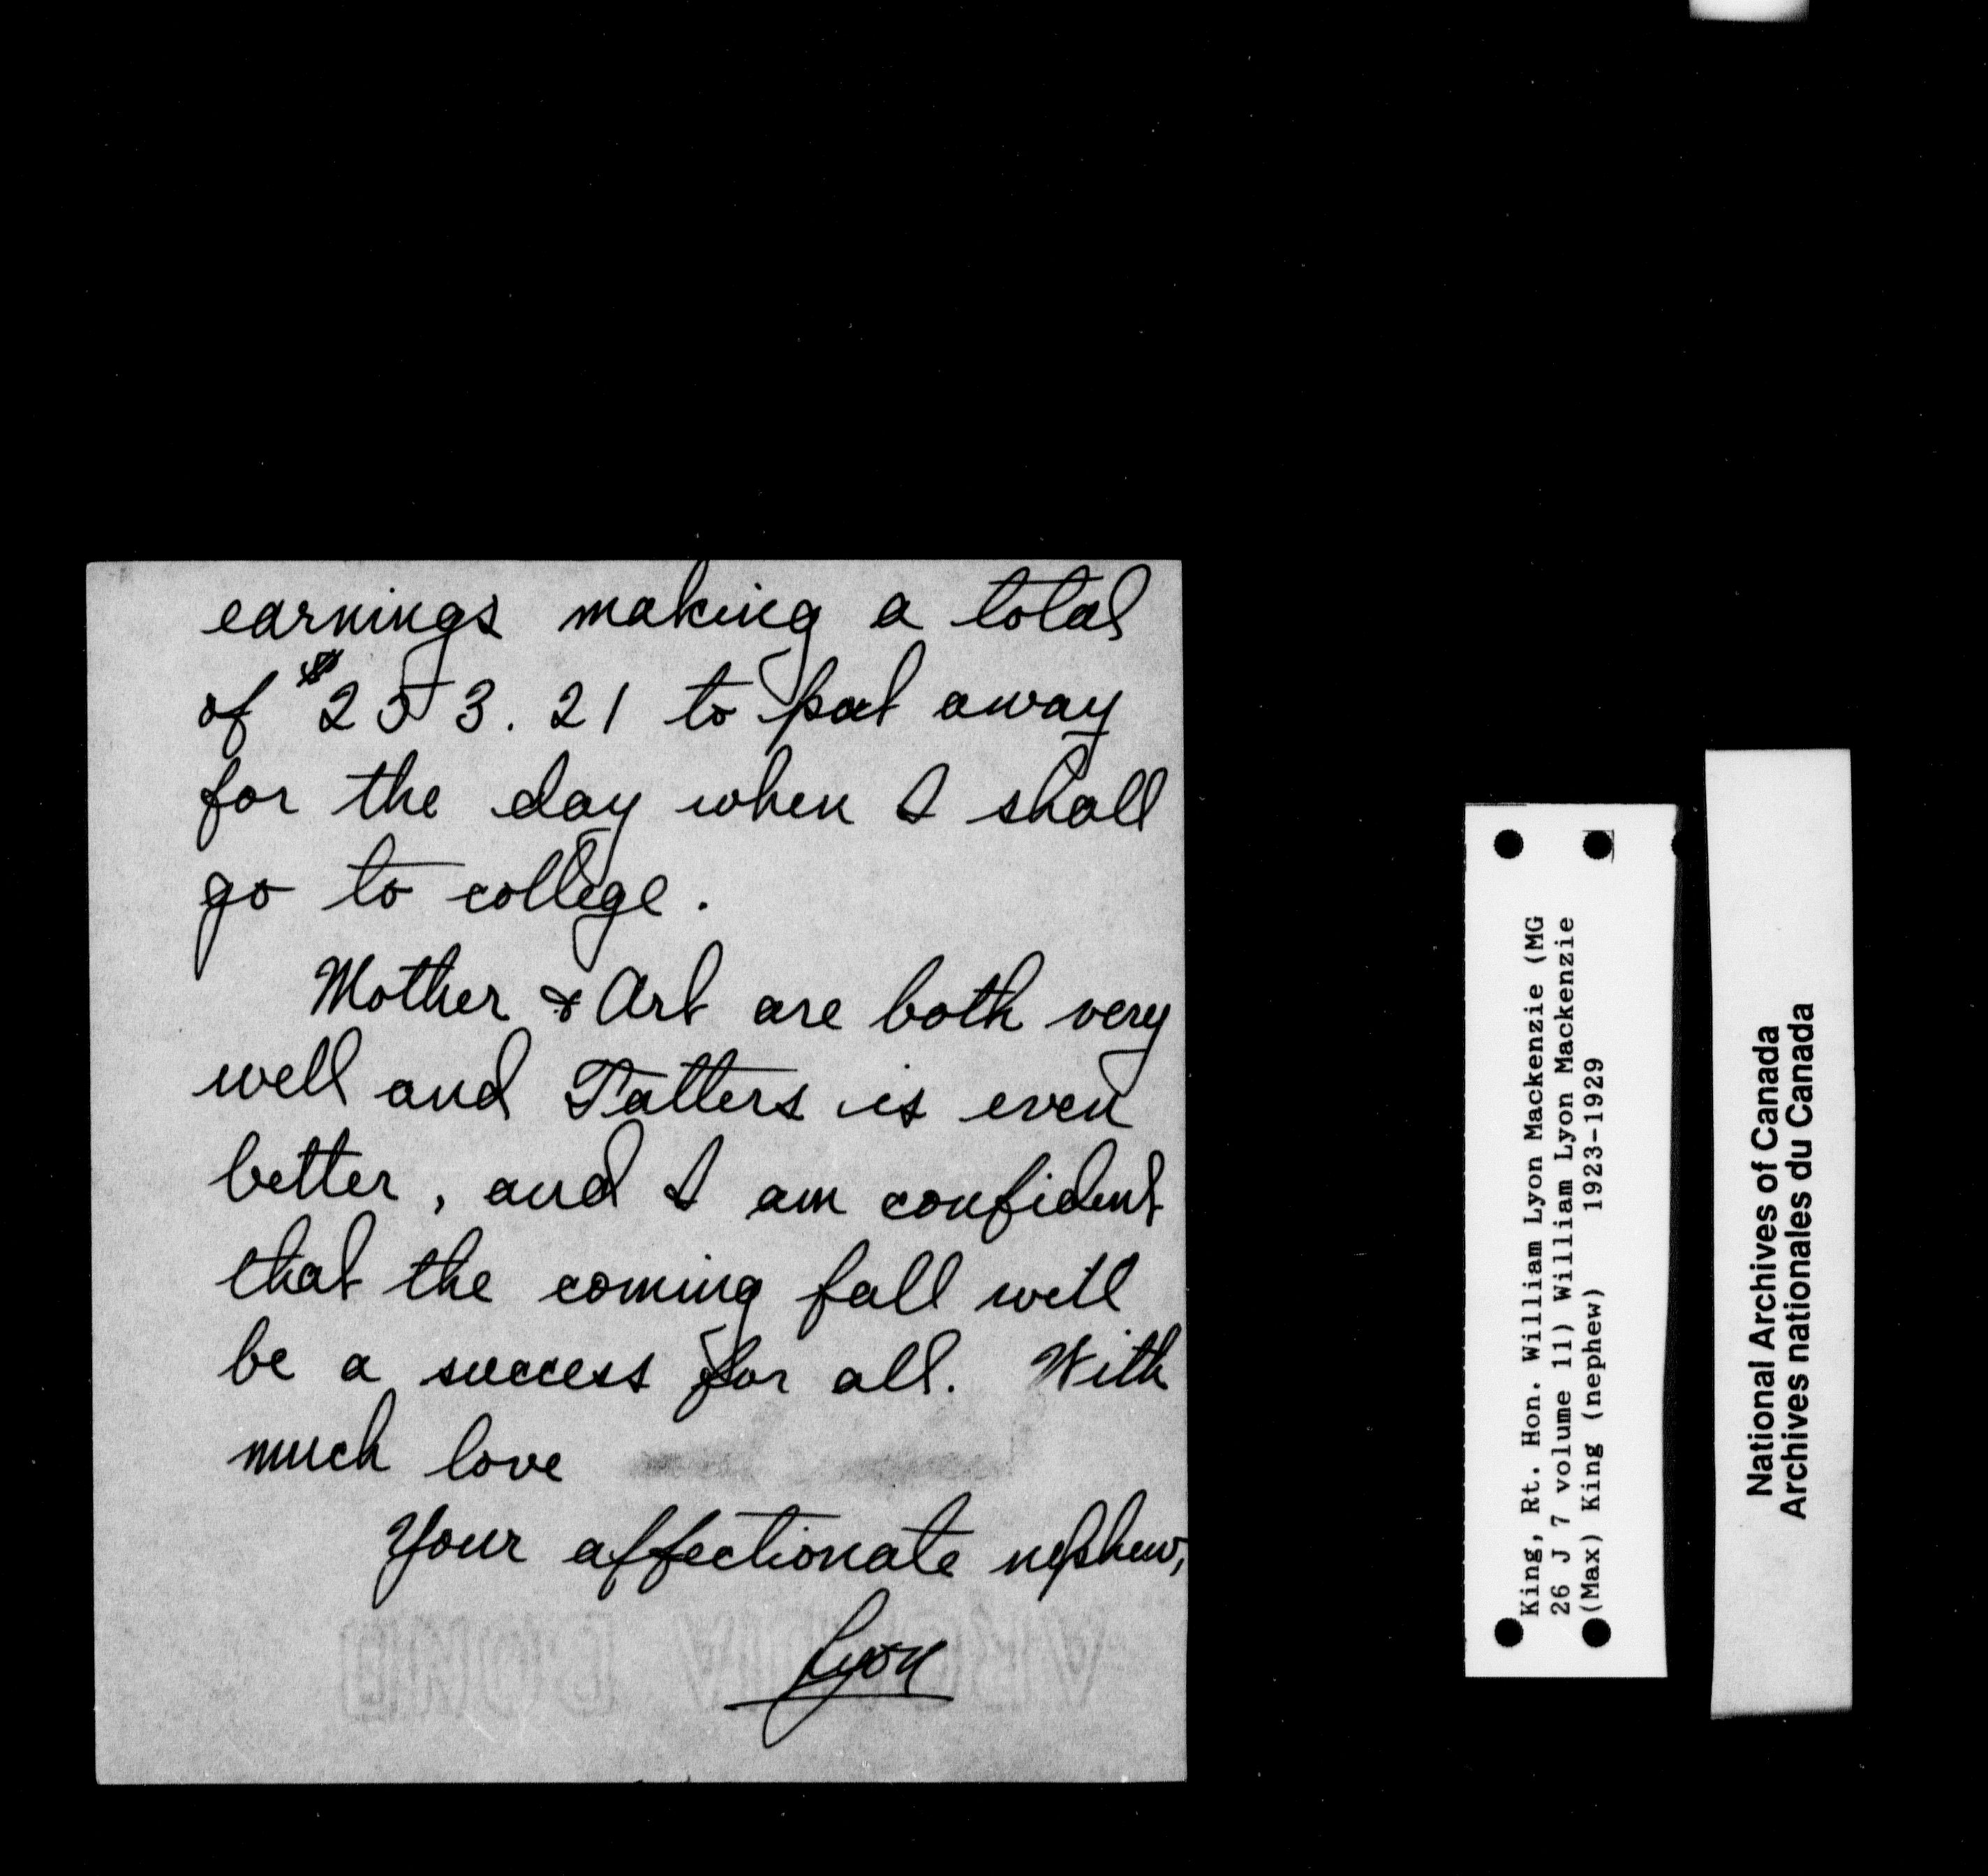 earnings making a total
of $253.21 to put away
for the day when I shall
go to college.
Mother & Art are both very
well and Tatters is even
better, and I am confident
that the coming fall will
be a success for all. With
much love
Your affectionate nephew,
Lyon
King, Rt. Hon. William Lyon Mackenzie (MG
26 J 7 volume 11) William Lyon Mackenzie
(Max) King (nephew) 1923-1929
National Archives of Canada
Archives nationales du Canada